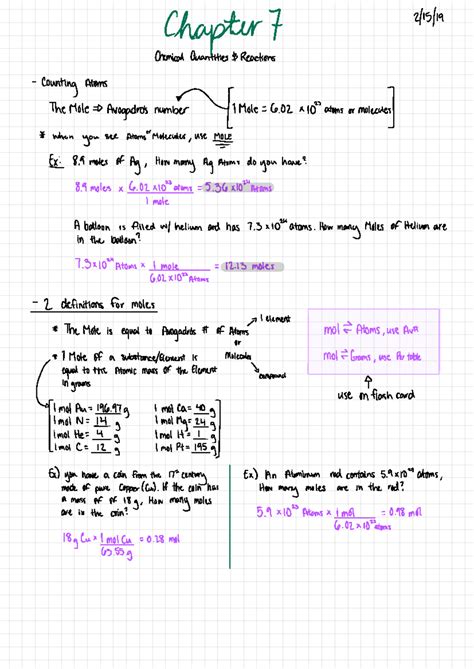 Chapter 7
2/15/19
Chemical Quantities & Reactions
- Counting Atoms
The Mole ⇒ Avogadros number
[1 Mole = 6.02 x 10²³ atoms or molecules]
* when you see Atoms or Molecules, use MOLE
Ex: 8.9 moles of Ag, How many Ag Atoms do you have?
8.9 moles x 6.02 x10²³ atoms / 1 mole = 5.36 x10²⁴ Atoms
A balloon is filled w/ helium and has 7.3 x10²⁴ atoms. How many Moles of Helium are
in the balloon?
7.3 x10²⁴ Atoms x 1 mole / 6.02 x10²³ Atoms = 12.13 moles
- 2 definitions for moles
* The Mole is equal to Avogadros # of Atoms
or
Molecules
1 element
compound
* 1 Mole of a substance/Element is
equal to the Atomic mass of the Element
in grams
mol ⇌ Atoms, use Av#
mol ⇌ Grams, use Per table
use on flash card
1 mol Au = 196.97 g
1 mol N = 14 g
1 mol He = 4 g
1 mol C = 12 g
1 mol Ca = 40 g
1 mol Mg = 24 g
1 mol H = 1 g
1 mol Pt = 195 g
Ex) you have a coin from the 17th century
made of pure Copper (Cu). If the coin has
a mass of of 18 g, How many moles
are in the coin?
18 g Cu x 1 mol Cu / 63.55 g = 0.28 mol
Ex) An Aluminum rod contains 5.9 x10²³ atoms,
How many moles are in the rod?
5.9 x10²³ Atoms x 1 mol / 6.02 x10²³ atoms = 0.98 mol